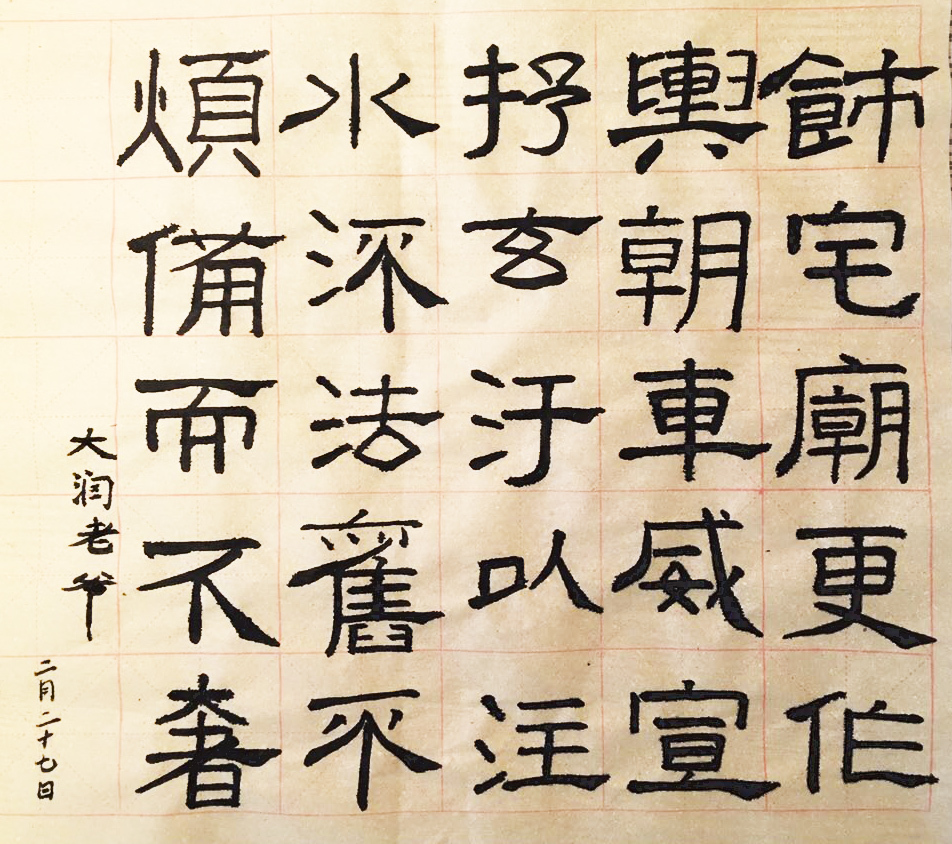 飾宅廟更作
輿朝車威宣
抒玄汙以注
水流法舊不
煩備而不奢
大润老爷
二月二十七日